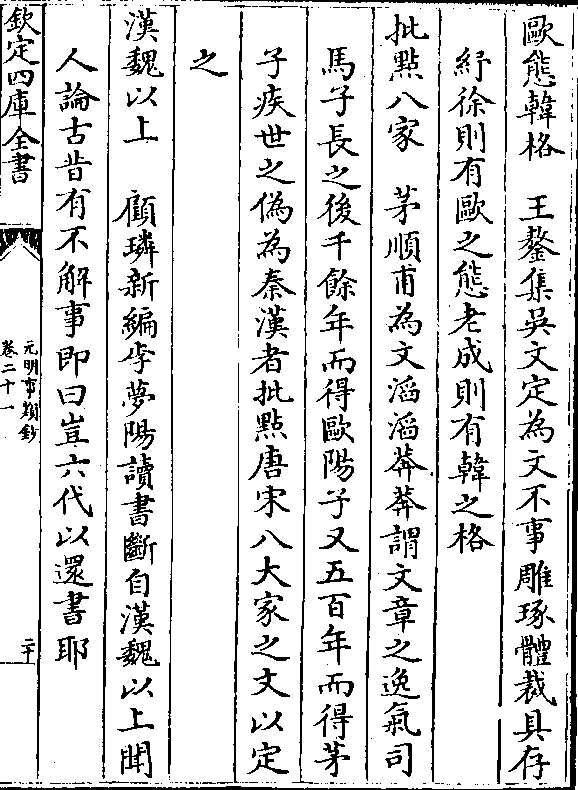 歐態韓格　王鏊集吳文定為文不事雕琢體裁具存
紓徐則有歐之態老成則有韓之格
批點八家　茅順甫為文滔滔莽莽謂文章之逸氣司
馬子長之後千餘年而得歐陽子又五百年而得茅
子疾世之偽為秦漢者批點唐宋八大家之文以定
之
漢魏以上　顧璘新編李夢陽讀書斷自漢魏以上聞
人論古昔有不解事即曰豈六代以還書耶
欽定四庫全書
元明事類鈔
卷二十一
二十